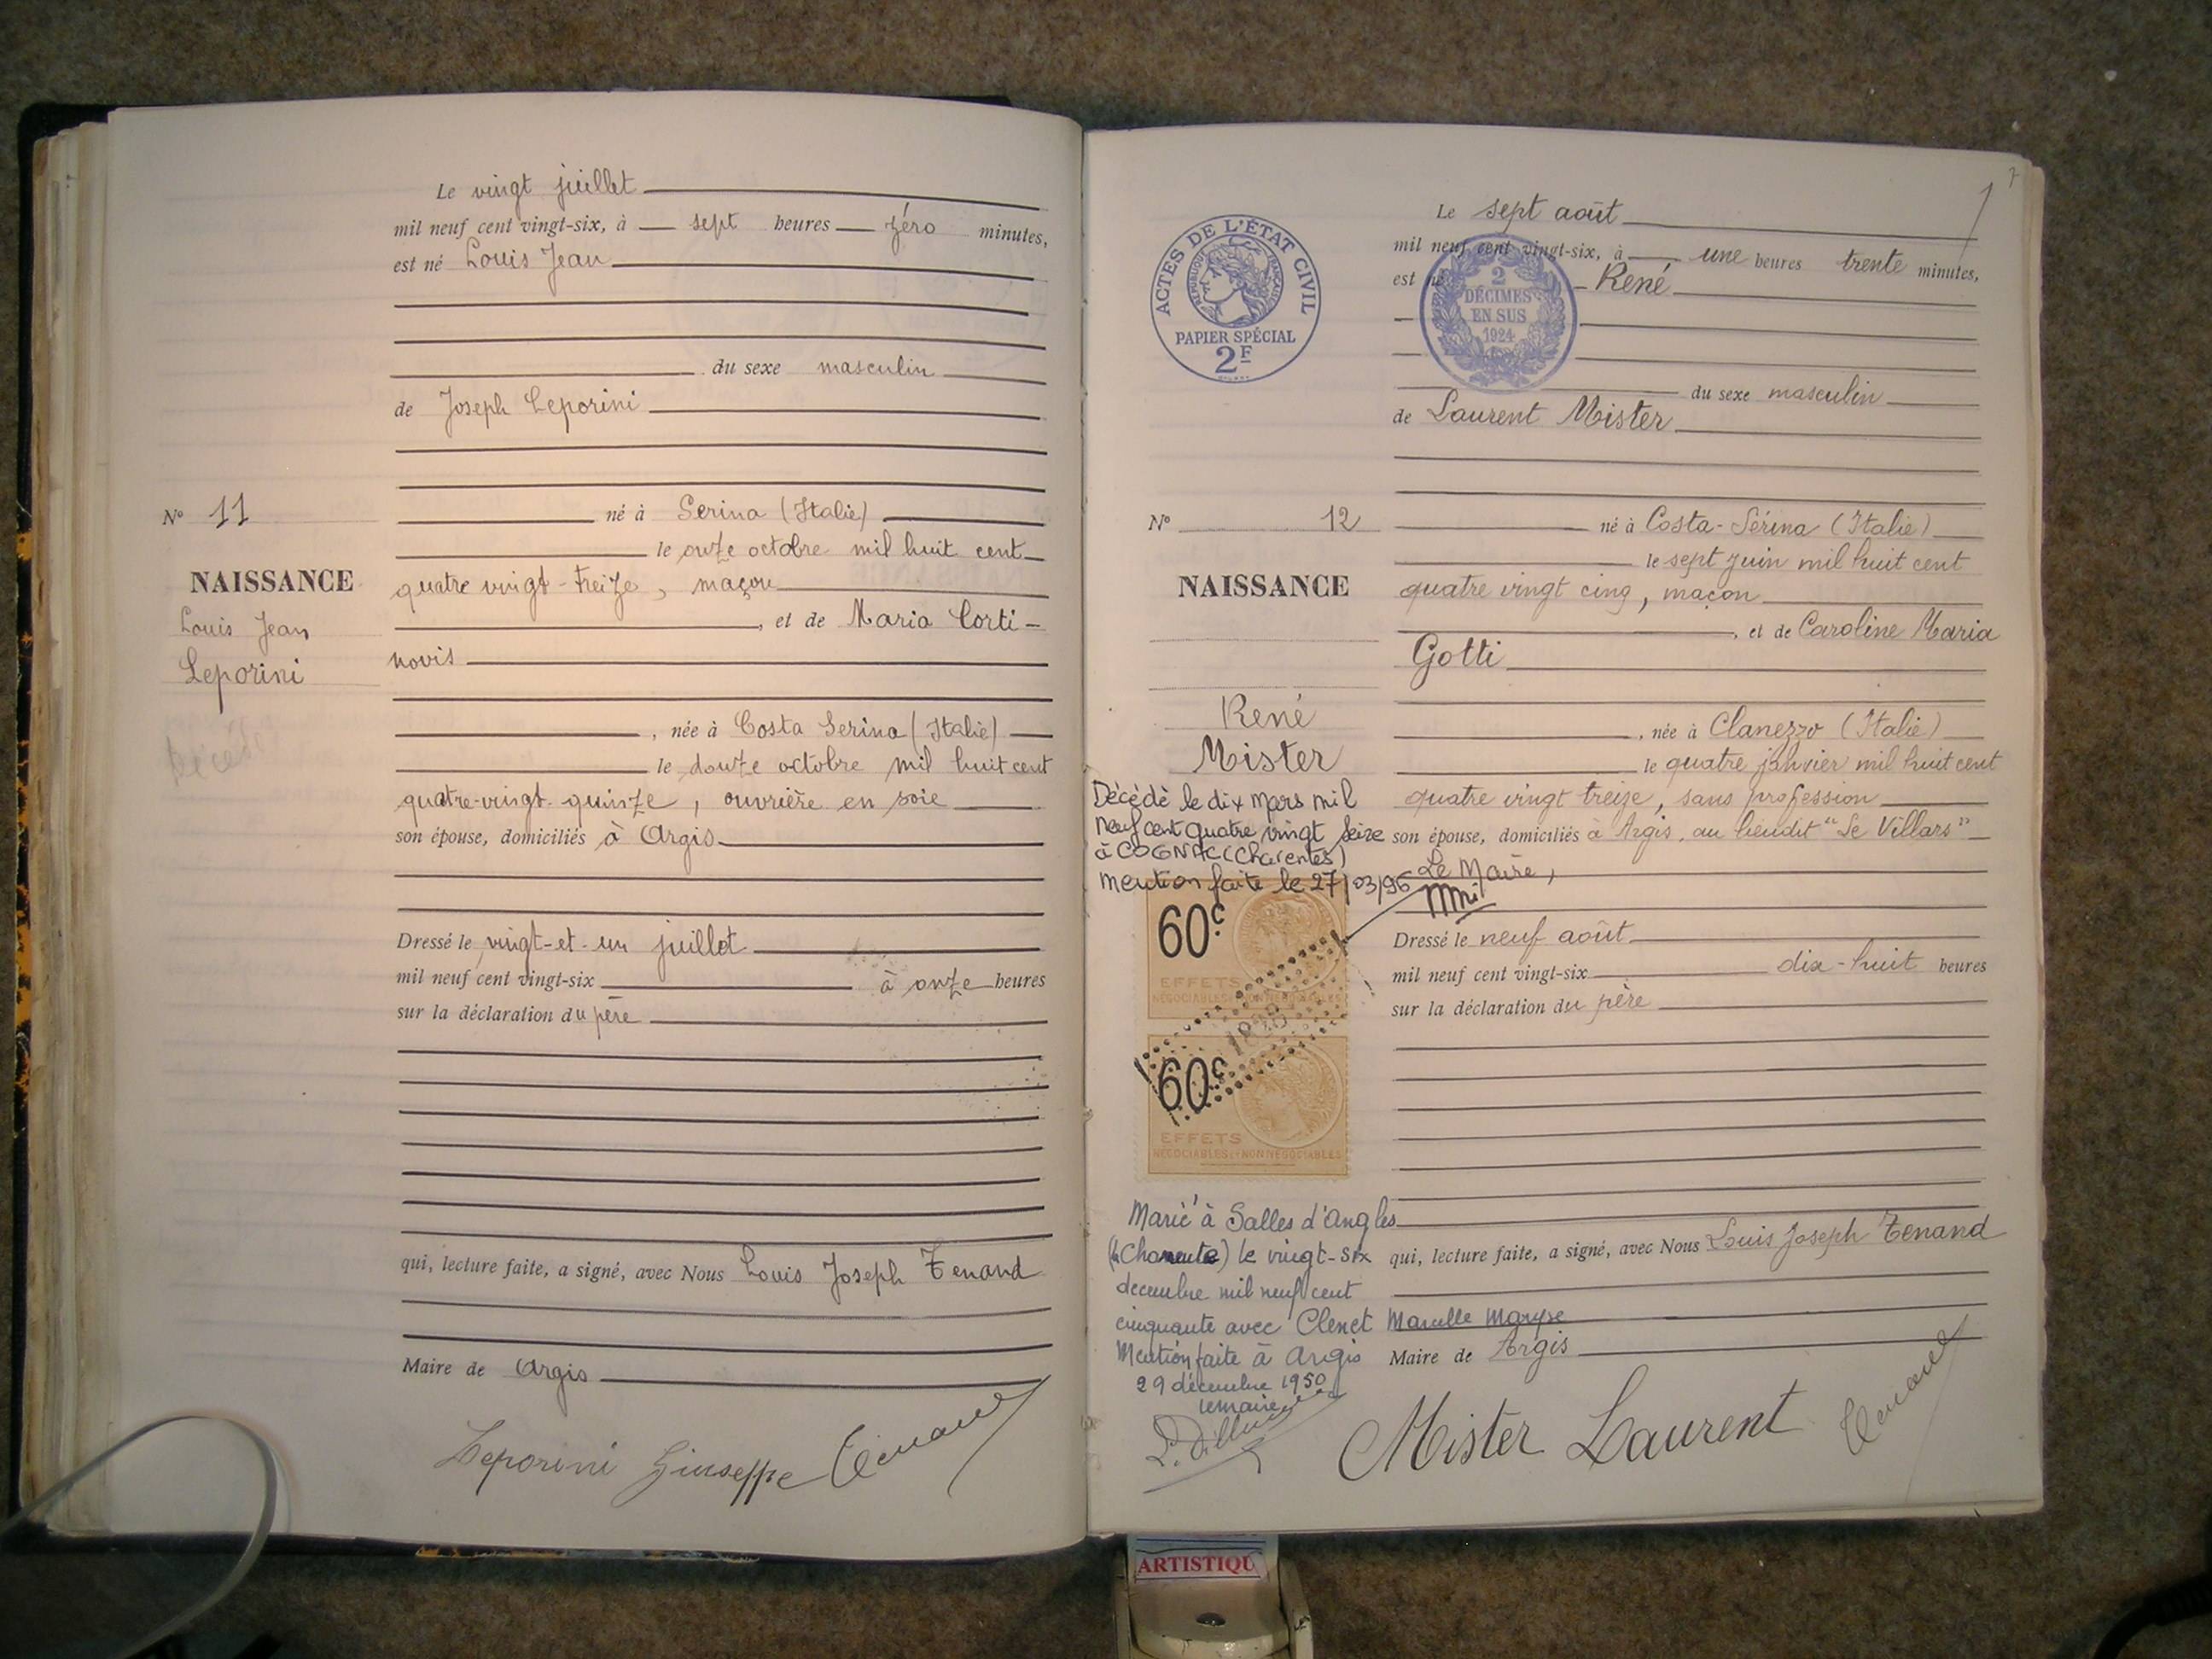 Le vingt juillet
mil neuf cent vingt-six, à sept heures zéro minutes,
est né Louis Jean
du sexe masculin
de Joseph Leporini
N° 11
né à Serina (Italie)
le onze octobre mil huit cent
NAISSANCE
quatre vingt-treize, maçon
Louis Jean
Leporini
, et de Maria Corti-
novis
, née à Costa Serina (Italie)
le douze octobre mil huit cent
quatre-vingt-quinze, ouvrière en soie
son épouse, domiciliés à Argis
Décédé
Dressé le vingt-et-un juillet
mil neuf cent vingt-six à onze heures
sur la déclaration du père
qui, lecture faite, a signé, avec Nous Louis Joseph Tenand
Maire de Argis
Leporini Giuseppe Tenand
7
ACTES DE L'ÉTAT CIVIL
RÉPUBLIQUE FRANÇAISE
PAPIER SPÉCIAL
2F
2
DÉCIMES
EN SUS
1924
Le sept août
mil neuf cent vingt-six, à une heures trente minutes,
est né René
du sexe masculin
de Laurent Mister
N° 12
né à Costa-Sérina (Italie)
le sept juin mil huit cent
NAISSANCE
quatre vingt cinq, maçon
, et de Caroline Maria
Gotti
René
Mister
, née à Clanezzo (Italie)
le quatre janvier mil huit cent
quatre vingt treize, sans profession
son épouse, domiciliés à Argis, au lieudit "Le Villars"
Décédé le dix Mars mil
Neuf cent quatre vingt seize
à COGNAC (Charentes)
mention faite le 27/03/96 Le Maire,
60c
EFFETS
NÉGOCIABLES ET NON NÉGOCIABLES
60c
EFFETS
NÉGOCIABLES ET NON NÉGOCIABLES
Dressé le neuf août
mil neuf cent vingt-six dix-huit heures
sur la déclaration du père
Marié à Salles d'Angles
(la Charente) le vingt-six
decembre mil neuf cent
cinquante avec Clenet Marcelle Maryse
Mention faite à Argis
29 décembre 1950
le maire
qui, lecture faite, a signé, avec Nous Louis Joseph Tenand
Maire de Argis
Mister Laurent Tenand
ARTISTIQU